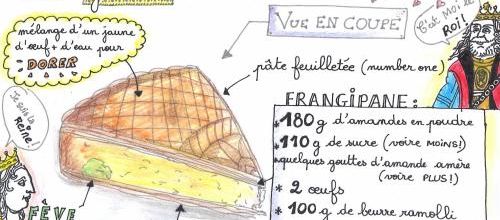 mélange d'un jaune
d'œuf + d'eau pour
DORER
VUE EN COUPE
C'est moi le
Roi!
pâte feuilletée (number one)
Je suis la
Reine!
FRANGIPANE:
* 180 g d'amandes en poudre
* 110 g de sucre (voire MOINS!)
* quelques gouttes d'amande amère
(voire PLUS!)
* 2 œufs
* 100 g de beurre ramolli
FÈVE